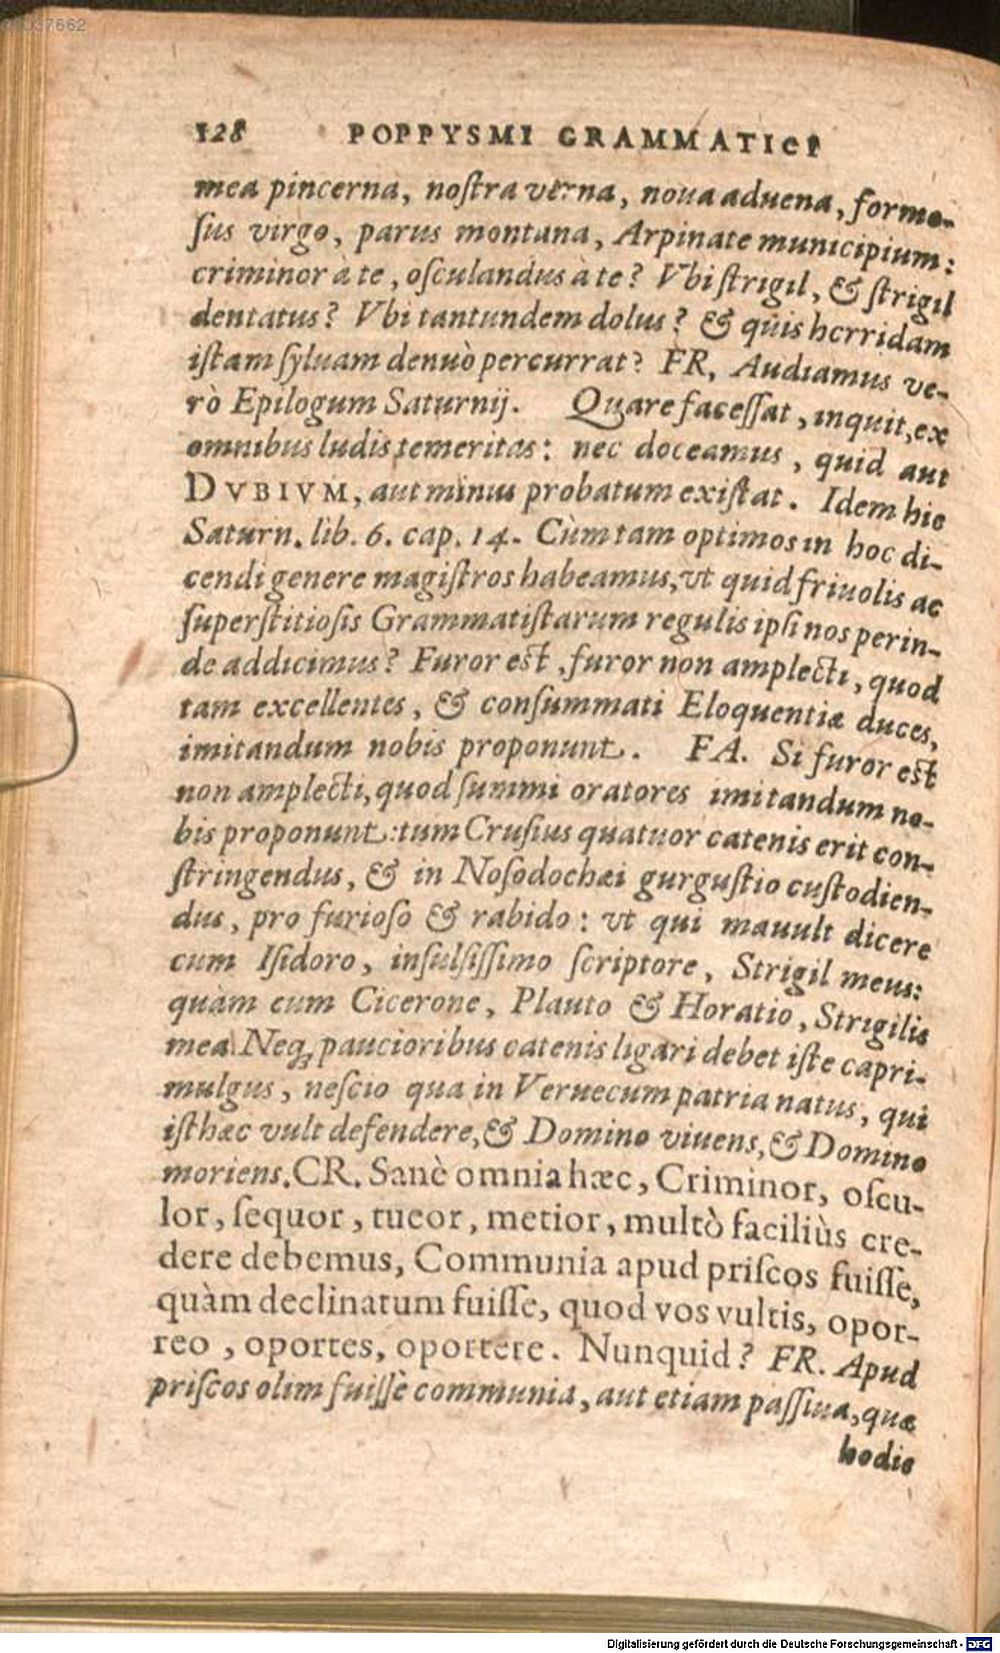 128 POPPYSMI GRAMMATICI
mea pincerna, noſtra verna, noua aduena, formo-
ſus virgo, parus montana, Arpinate municipium:
criminor à te, oſculandus à te? Vbi ſtrigil, & ſtrigil
dentatus? Vbi tantundem dolus? & quis horridam
iſtam ſyluam denuò percurrat? FR. Audiamus ve-
rò Epilogum Saturnij. Quare faceſſat, inquit, ex
omnibus ludis temeritas: nec doceamus, quid aut
DVBIVM, aut minus probatum exiſtat. Idem hic
Saturn. lib. 6. cap. 14. Cùm tam optimos in hoc di-
cendi genere magiſtros habeamus, vt quid friuolis ac
ſuperſtitioſis Grammatiſtarum regulis ipſi nos perin-
de addicimus? Furor eſt, furor non amplecti, quod
tam excellentes, & conſummati Eloquentiæ duces,
imitandum nobis proponunt. FA. Si furor eſt
non amplecti, quod ſummi oratores imitandum no-
bis proponunt: tum Cruſius quatuor catenis erit con-
ſtringendus, & in Noſodochæi gurguſtio cuſtodien-
dus, pro furioſo & rabido: vt qui mauult dicere
cum Iſidoro, inſulſiſſimo ſcriptore, Strigil meus:
quàm cum Cicerone, Plauto & Horatio, Strigilis
mea. Neq; paucioribus catenis ligari debet iſte capri-
mulgus, neſcio qua in Veruecum patria natus, qui
iſthæc vult defendere, & Domino viuens, & Domino
moriens. CR. Sanè omnia hæc, Criminor, oſcu-
lor, ſequor, tueor, metior, multò faciliùs cre-
dere debemus, Communia apud priſcos fuiſſe,
quàm declinatum fuiſſe, quod vos vultis, opor-
reo, oportes, oportere. Nunquid? FR. Apud
priſcos olim fuiſſe communia, aut etiam paſſiua, quæ
hodie
Digitalisierung gefördert durch die Deutsche Forschungsgemeinschaft - DFG